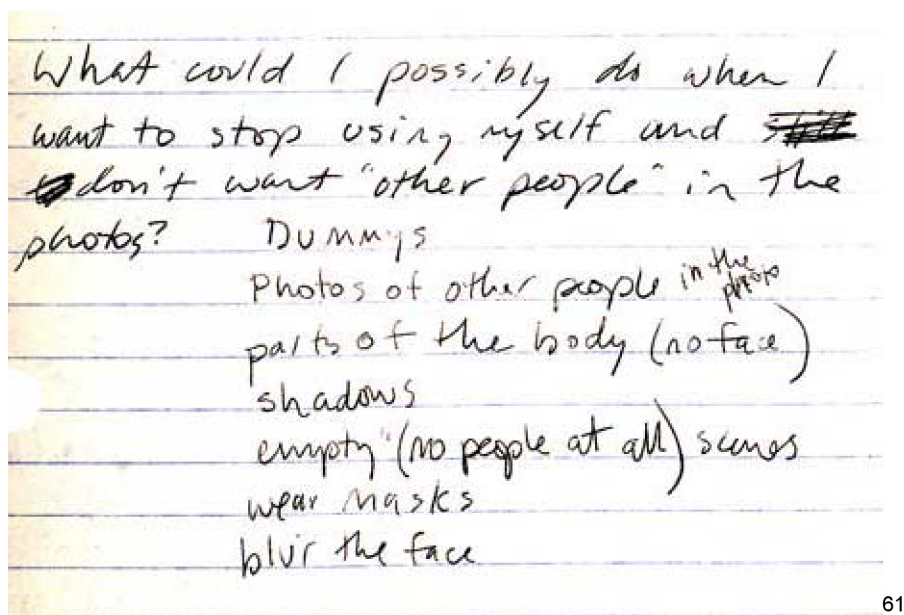 What could I possibly do when I
want to stop using myself and
don't want "other people" in the
photos?
Dummys
Photos of other people in the photo
parts of the body (no face)
shadows
empty (no people at all) scenes
wear masks
blur the face
61